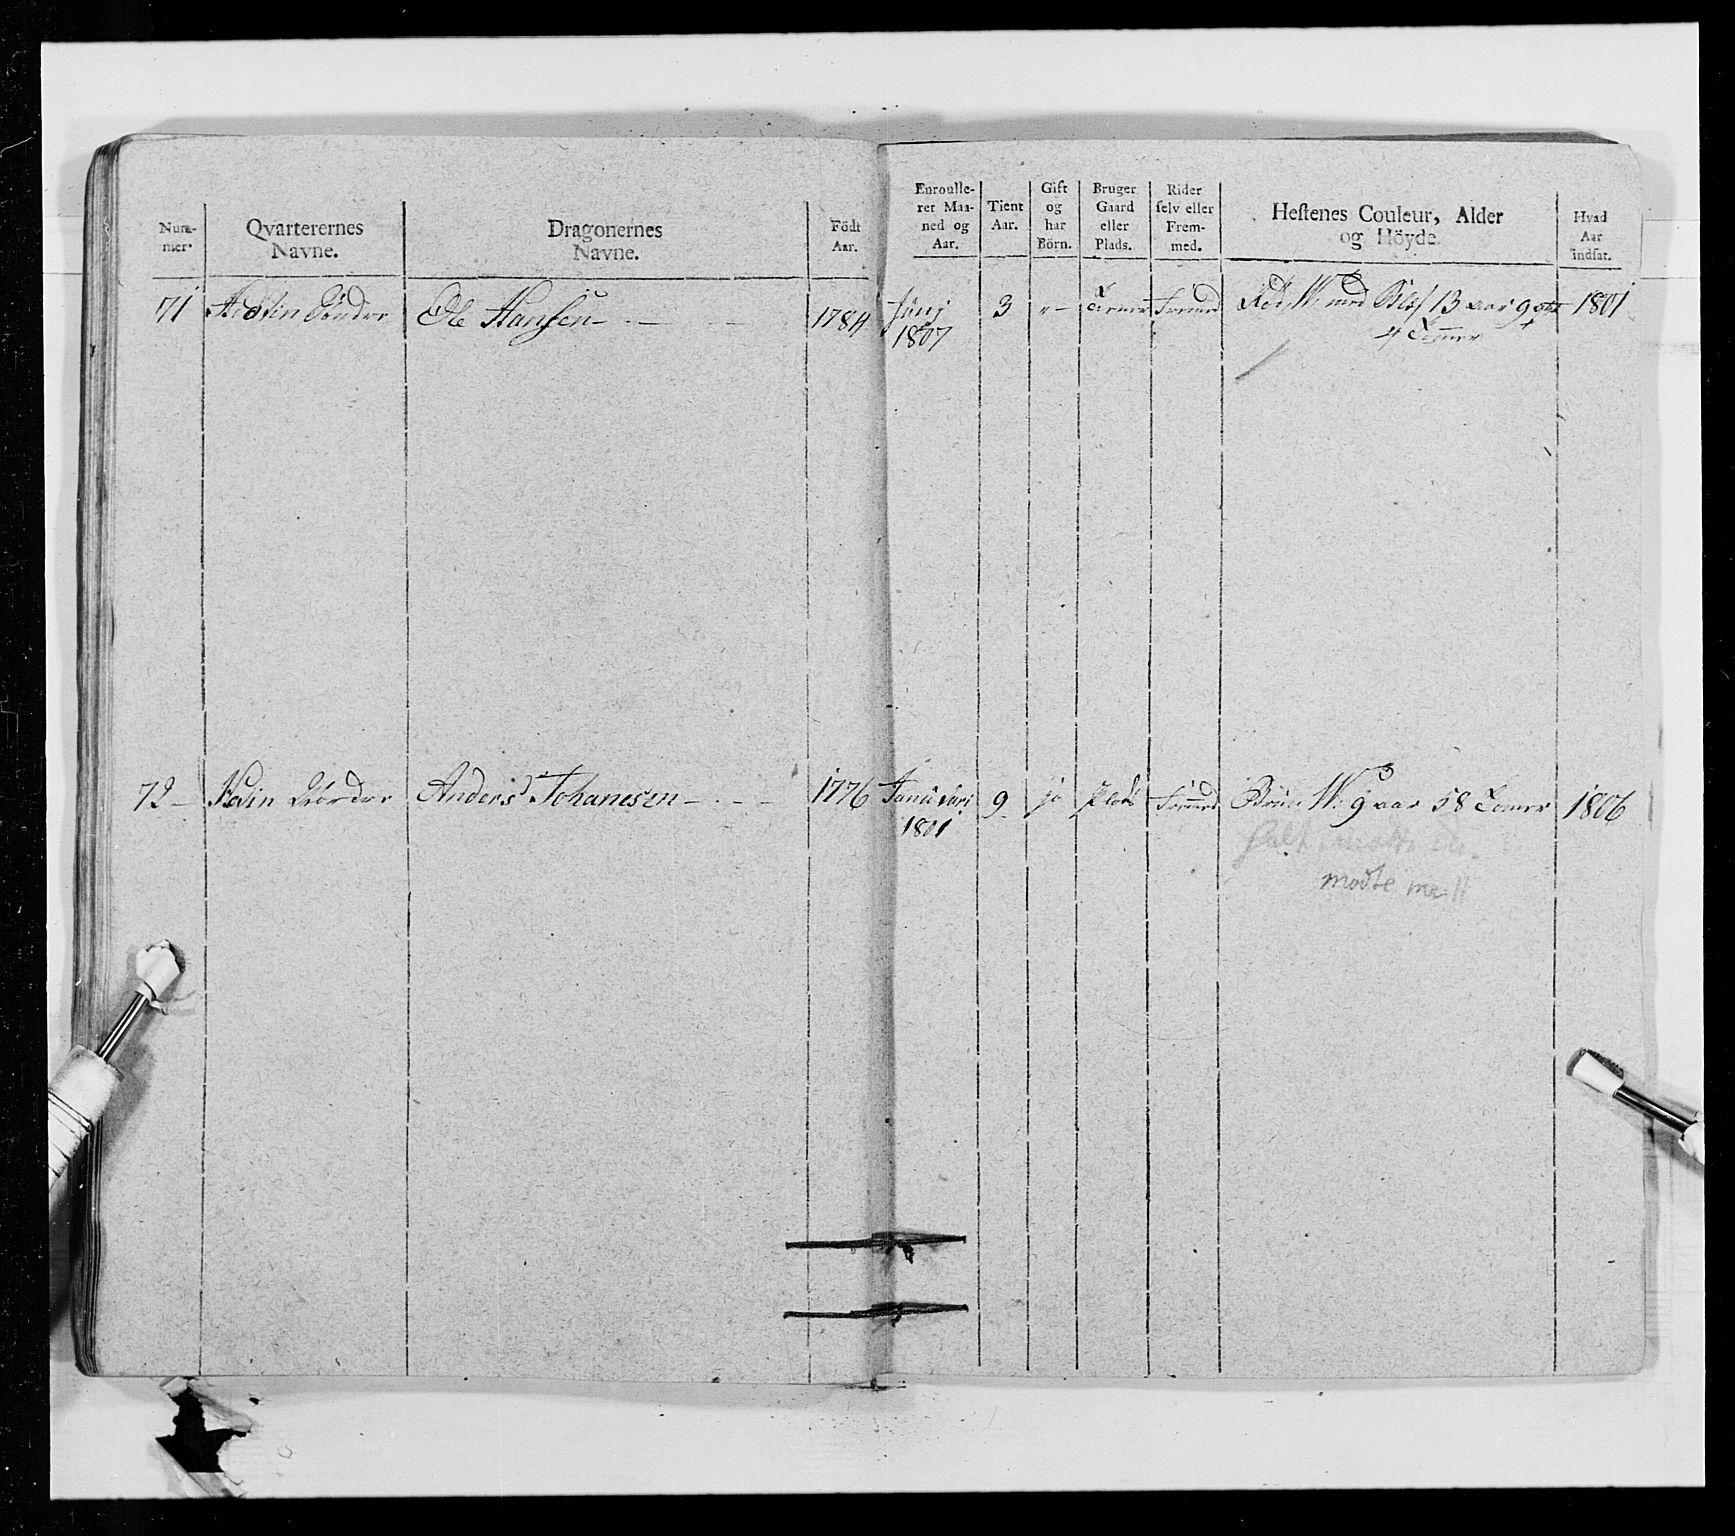 Num-
mer.
Qvarterernes
Navne.
Dragonernes
Navne.
Födt
Aar.
Enroulle-
ret Maa-
ned og
Aar.
Tient
Aar.
Gift
og
har
Börn.
Bruger
Gaard
eller
Plads.
Rider
selv eller
Frem-
med.
Hestenes Couleur, Alder
og Höyde.
Hvad
Aar
indsat.
71 Søndre Ole Hansen 1784 Junj 3 " Fremed Rød W. med Bles 13 aar 9 1801
1807 4 Tomer
72 Nordre Anders Johanesen 1776 Januari 9 ja Plads Fremed Brun W. 9 aar 58 Tomer 1806
1801
modte